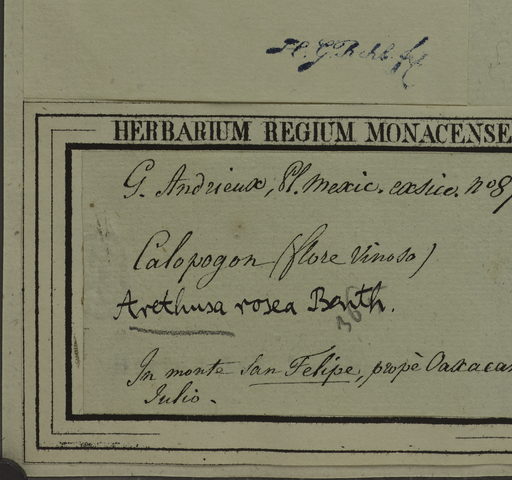 H. G. Rchb. fil
HERBARIUM REGIUM MONACENSE
G. Andrieux, Pl. Mexic. exsicc. no 8
Calopogon (flore vinoso)
Arethusa rosea Benth.
36
In monte San Felipe, propè Oaxacam
Julio.